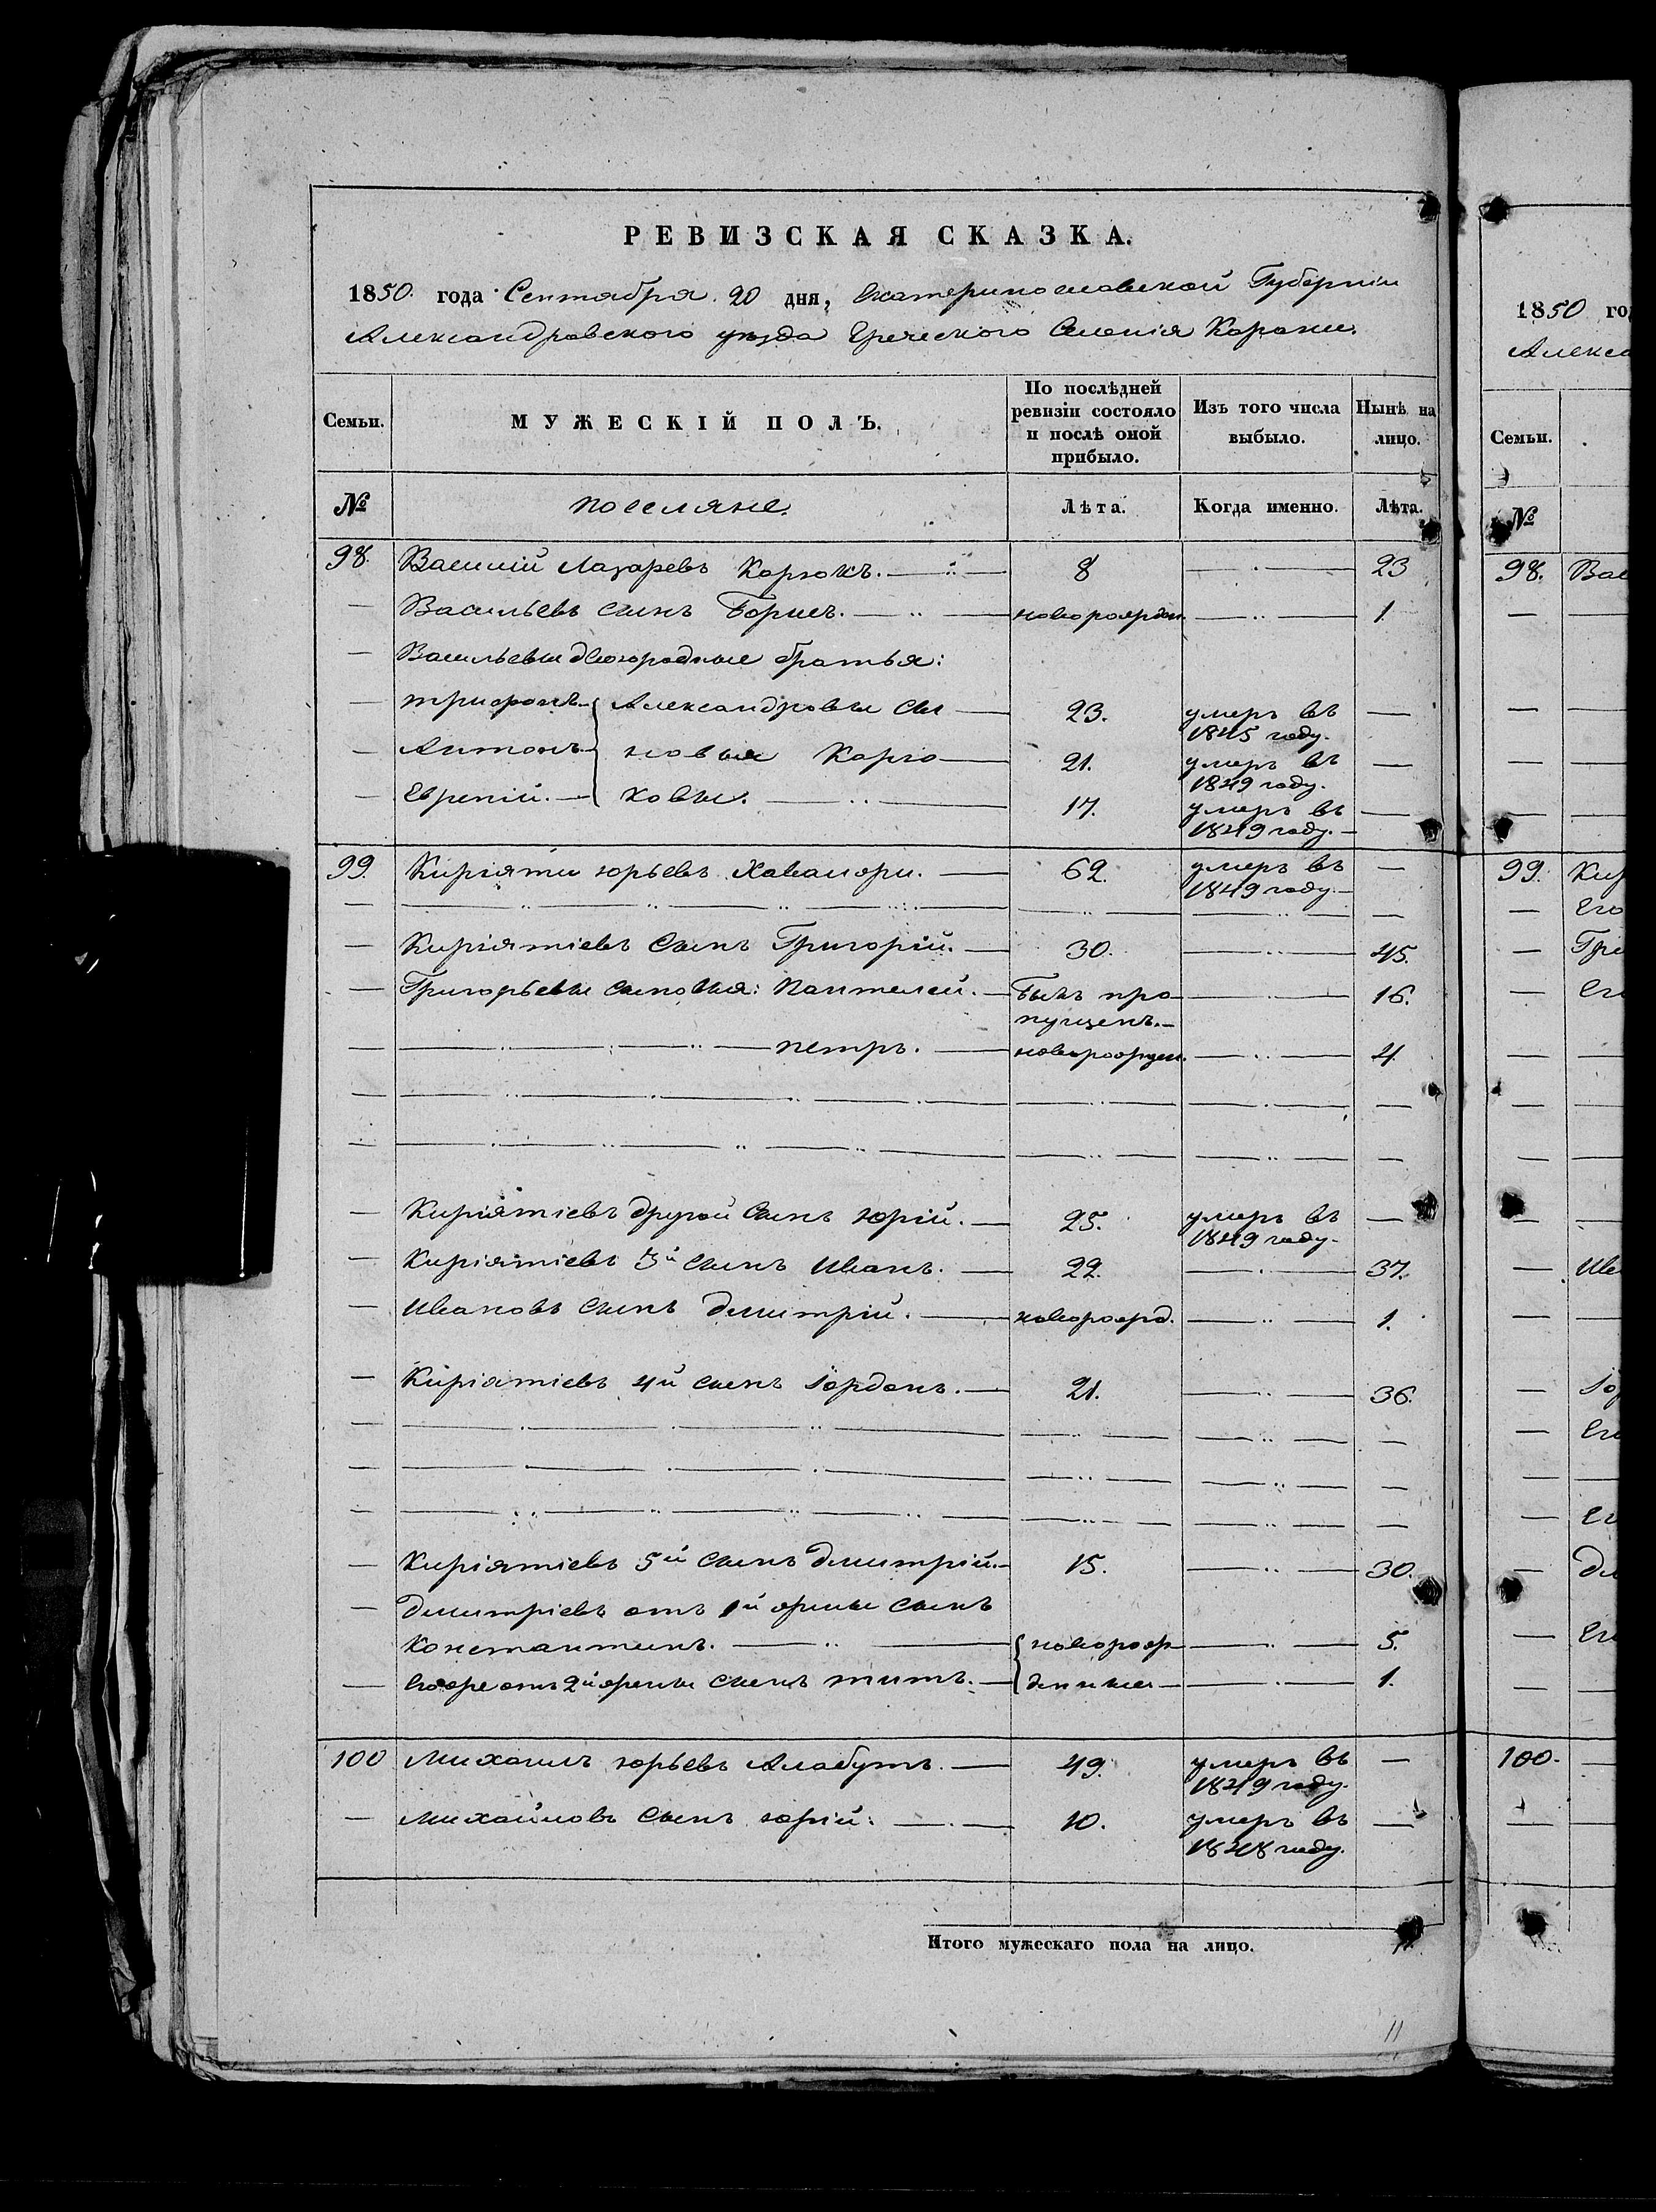 РЕВИЗСКАЯ СКАЗКА.
1850. года Сентября 20 дня, Екатеринославской Губерніи
Александровского уезда Греческого Селенія Карани.
Семьи. МУЖЕСКІЙ ПОЛЪ. По послѣдней ревизіи состояло и послѣ оной прибыло. Изъ того числа выбыло. Нынѣ на лицо.
№ поселяне. Лѣта. Когда именно. Лѣта.
98. Василій Лазаревъ Карзокъ. 8 23
Васильевъ сынъ Борисъ. новорожден. 1.
Васильевы двоюродные братья:
Трифонъ Александровы сы 23. умеръ въ 1845 году.
Антонъ новья 21. умеръ въ 1849 году.
ховы. 17. умеръ въ 1849 году.
99. Киріяти Юрьевъ 62. умеръ въ 1849 году.
Киріятіевъ Сынъ Григорій. 30. 45.
Григорьевы сыновья: Пантелей. Былъ пропущенъ. 16.
Петръ. новорожден. 4
Киріятіевъ другой Сынъ Юрій. 25. умеръ въ 1849 году.
Киріятіевъ 3й сынъ Иванъ. 22. 37.
Ивановъ сынъ Дмитрій. новорожд. 1.
Киріятіевъ 4й сынъ Іорданъ. 21. 36.
Киріятіевъ 5й сынъ Дмитрій. 15. 30.
Дмитріевъ отъ 1й жены сынъ
Константинъ. новорож 5.
Егоже отъ 2й жены сынъ Титъ. денные 1.
100 Михаилъ Юрьевъ Алабутъ. 49. умеръ въ 1849 году.
Михайловъ Сынъ Юрій. 10. умеръ въ 1848 году.
Итого мужескаго пола на лицо. 11.
11
1850 го
Алекса
Семьи.
№
98. Вас
99. Кир
Его
Гри
Ег
Ив
Іор
Ег
Ег
Дм
Ег
100.